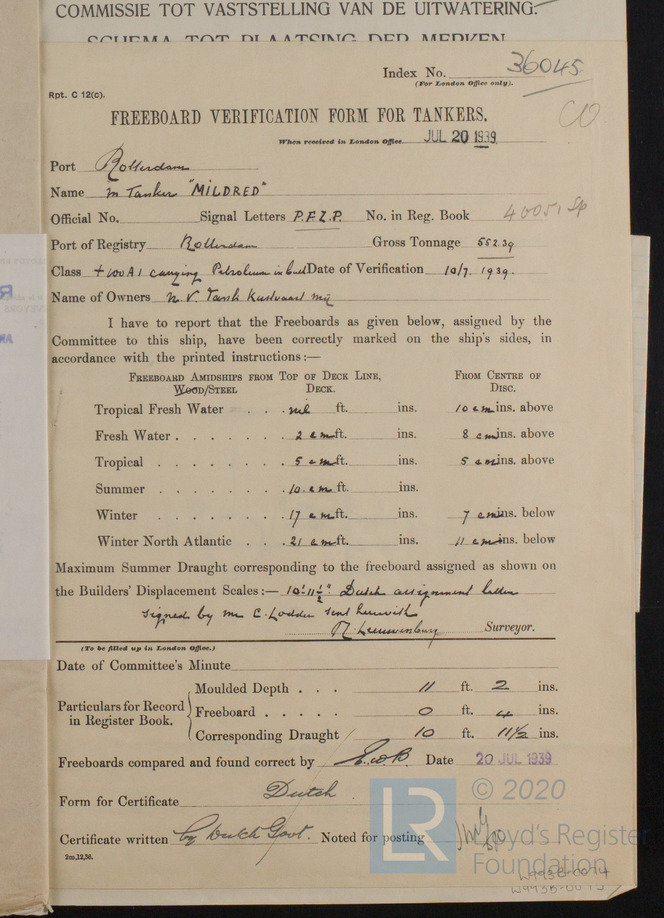 COMMISSIE TOT VASTSTELLING VAN DE UITWATERING.
SCHEMA TOT PLAATSING DER MERKEN
Index No. 36045
(For London Office only).
Rpt. C 12(c).
CO
FREEBOARD VERIFICATION FORM FOR TANKERS.
When received in London Office JUL 20 1939
Port Rotterdam
Name m Tanker "MILDRED"
Official No. Signal Letters P.F.Z.P. No. in Reg. Book 40051 Sp
Port of Registry Rotterdam Gross Tonnage 552.39
Class +100A1 carrying Petroleum in bulk Date of Verification 10/7. 1939.
Name of Owners N.V. Tank Kustvaart mij
I have to report that the Freeboards as given below, assigned by the
Committee to this ship, have been correctly marked on the ship's sides, in
accordance with the printed instructions:—
FREEBOARD AMIDSHIPS FROM TOP OF DECK LINE, FROM CENTRE OF
WOOD/STEEL DECK. DISC.
Tropical Fresh Water . . . nil ft. ins. 10 cm ins. above
Fresh Water . . . . . . . 2 cm ft. ins. 8 cm ins. above
Tropical . . . . . . . . 5 cm ft. ins. 5 cm ins. above
Summer . . . . . . . . 10 cm ft. ins.
Winter . . . . . . . . 17 cm ft. ins. 7 cm ins. below
Winter North Atlantic . . . 21 cm ft. ins. 11 cm ins. below
Maximum Summer Draught corresponding to the freeboard assigned as shown on
the Builders' Displacement Scales:— 10'-11½" Dutch assignment letter
signed by Mr C. Lodder sent herewith
Leeuwenburg Surveyor.
(To be filled up in London Office.)
Date of Committee's Minute
Particulars for Record in Register Book.
Moulded Depth . . . 11 ft. 2 ins.
Freeboard . . . . . 0 ft. 4 ins.
Corresponding Draught 10 ft. 11½ ins.
Freeboards compared and found correct by E.W.B. Date 20 JUL 1939
Form for Certificate Dutch
Certificate written by Dutch Govt. Noted for posting
2m,12,36.
LR
© 2020
Lloyd's Register
Foundation
W993B-0074
W993B-0075